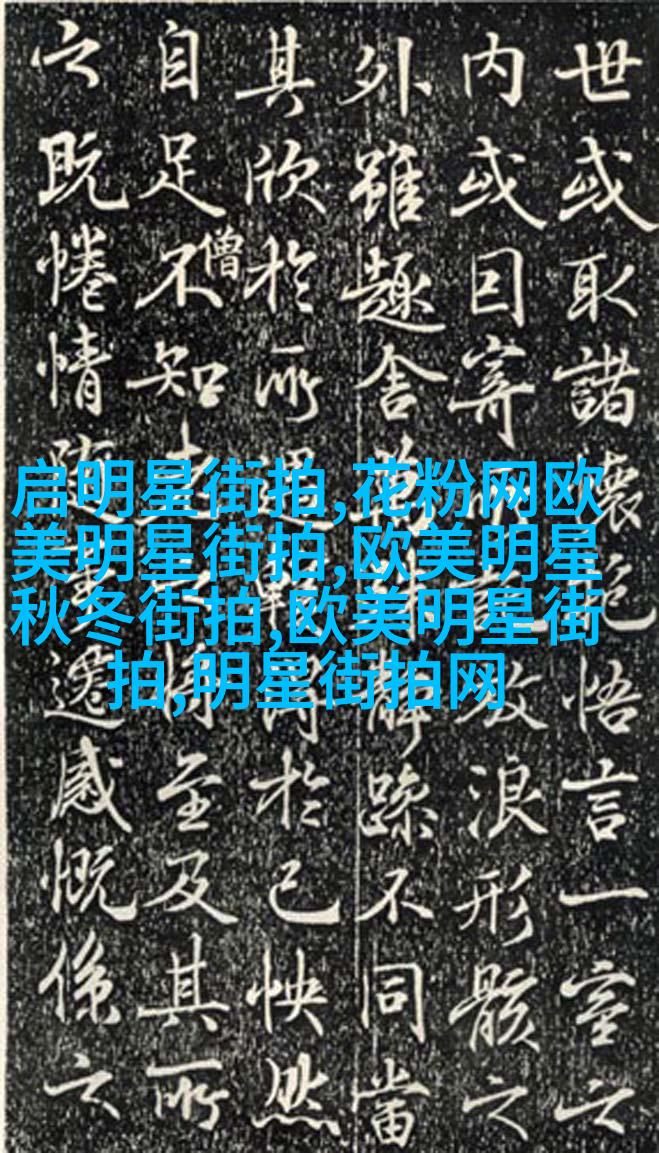 世或取諸懷抱悟言一室之
内或因寄放浪形骸之
外雖趣舍靜躁不同當
其欣於所遇於己怏然
自足不知至及其所
僧
之既惓情遷感慨係之
启明星街拍,花粉网欧
美明星街拍,欧美明星
秋冬街拍,欧美明星街
拍,明星街拍网